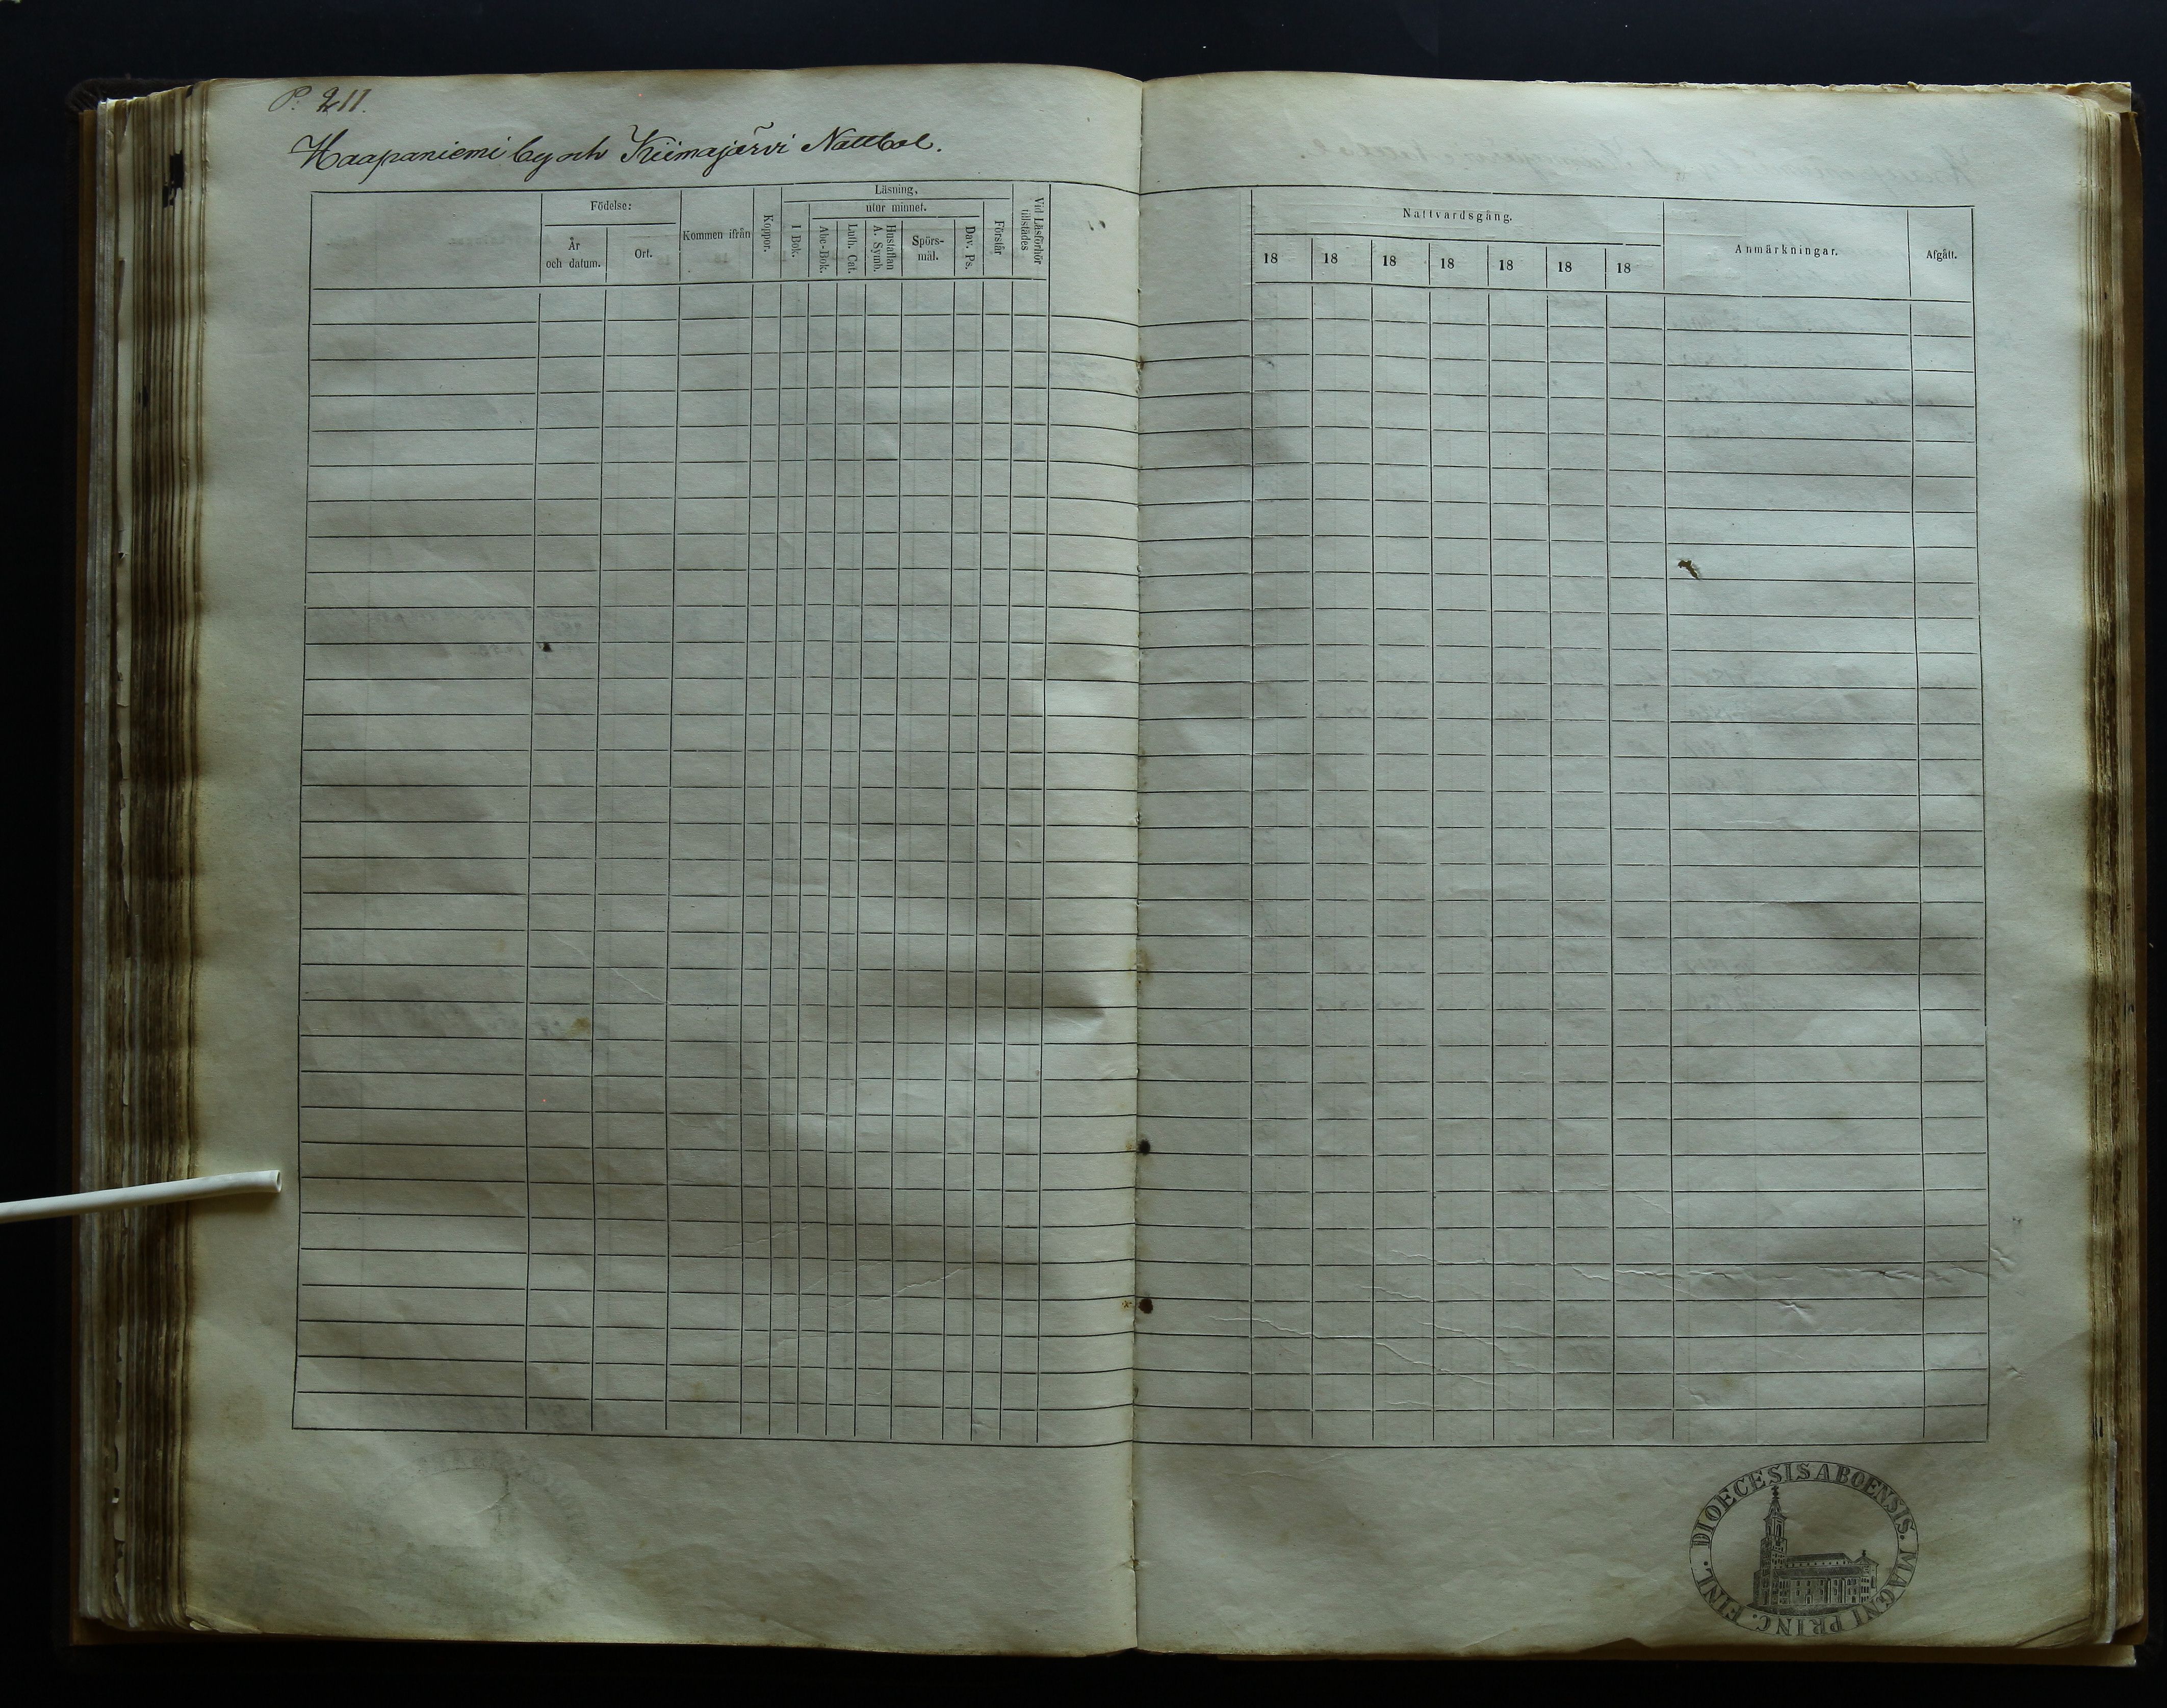 P. 211.
Haapaniemi by och Kiimajärvi Nattbol.
Födelse:
År
och datum.
Ort.
Kommen ifrån
Koppor.
Läsning,
utur minnet.
I Bok.
Abc-Bok.
Luth. Cat.
Hustaflan
A. Symb.
Spörs-
mål.
Dav. Ps.
Förstår
Vid Läsförhör
tillstädes
Nattvardsgång.
18 18 18 18 18 18 18
Anmärkningar.
Afgått.
DIOECESIS ABOENSIS. MAGNI PRINC. FINL.